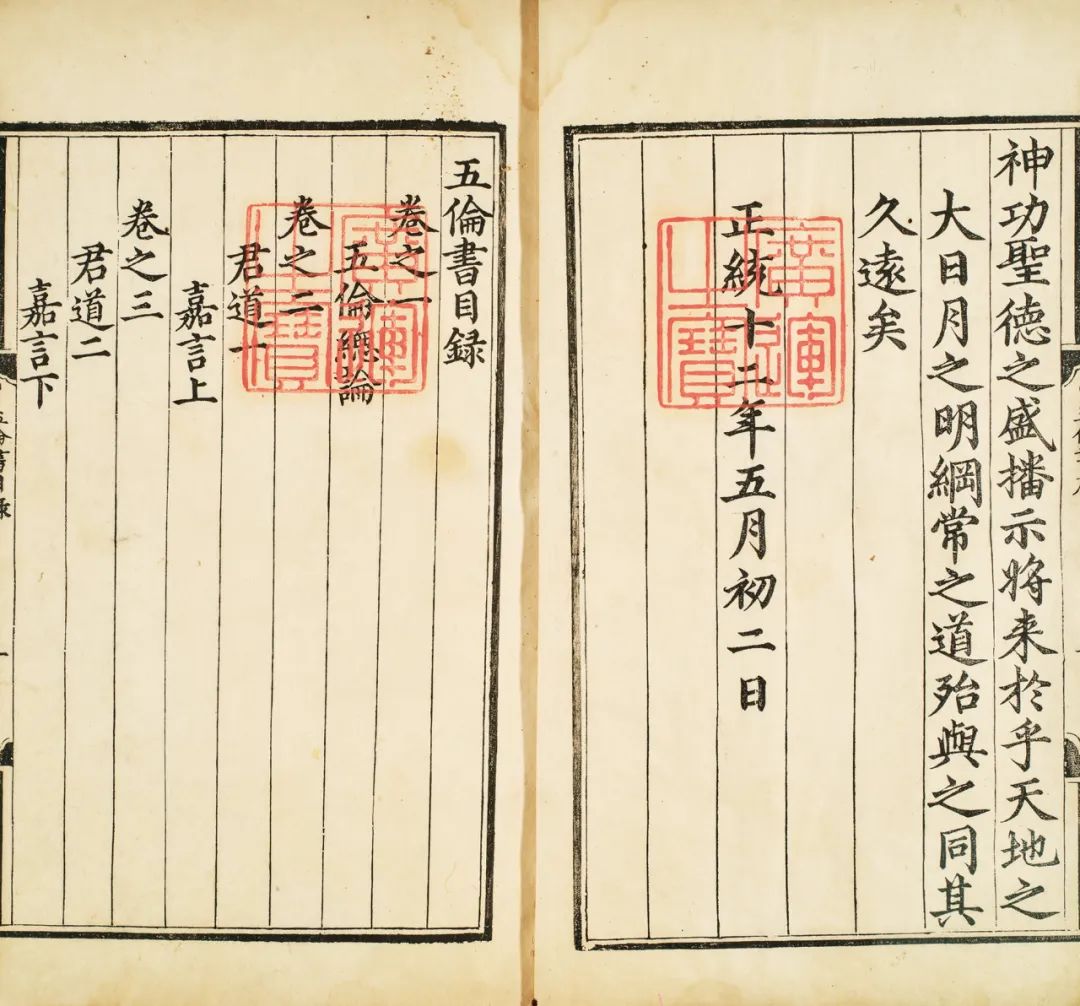 神功聖德之盛播示將来於乎天地之
大日月之明綱常之道殆與之同其
久遠矣
正統十二年五月初二日
廣運之寶
五倫書目録
卷之一
五倫緫論
卷之二
君道一
嘉言上
卷之三
君道二
嘉言下
廣運之寶
五倫書目录